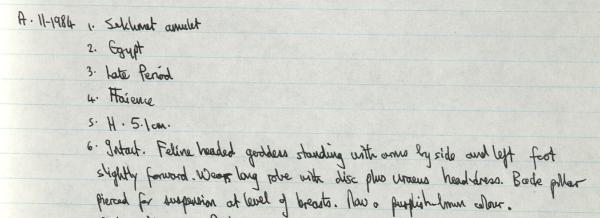 A.11-1984 1. Sekhmet amulet
2. Egypt
3. Late Period
4. Faience
5. H. 5.1cm.
6. Intact. Feline headed goddess standing with arms by side and left foot
slightly forward. Wears long robe with disc plus uraeus headdress. Back pillar
pierced for suspension at level of breasts. Now a purplish-brown colour.